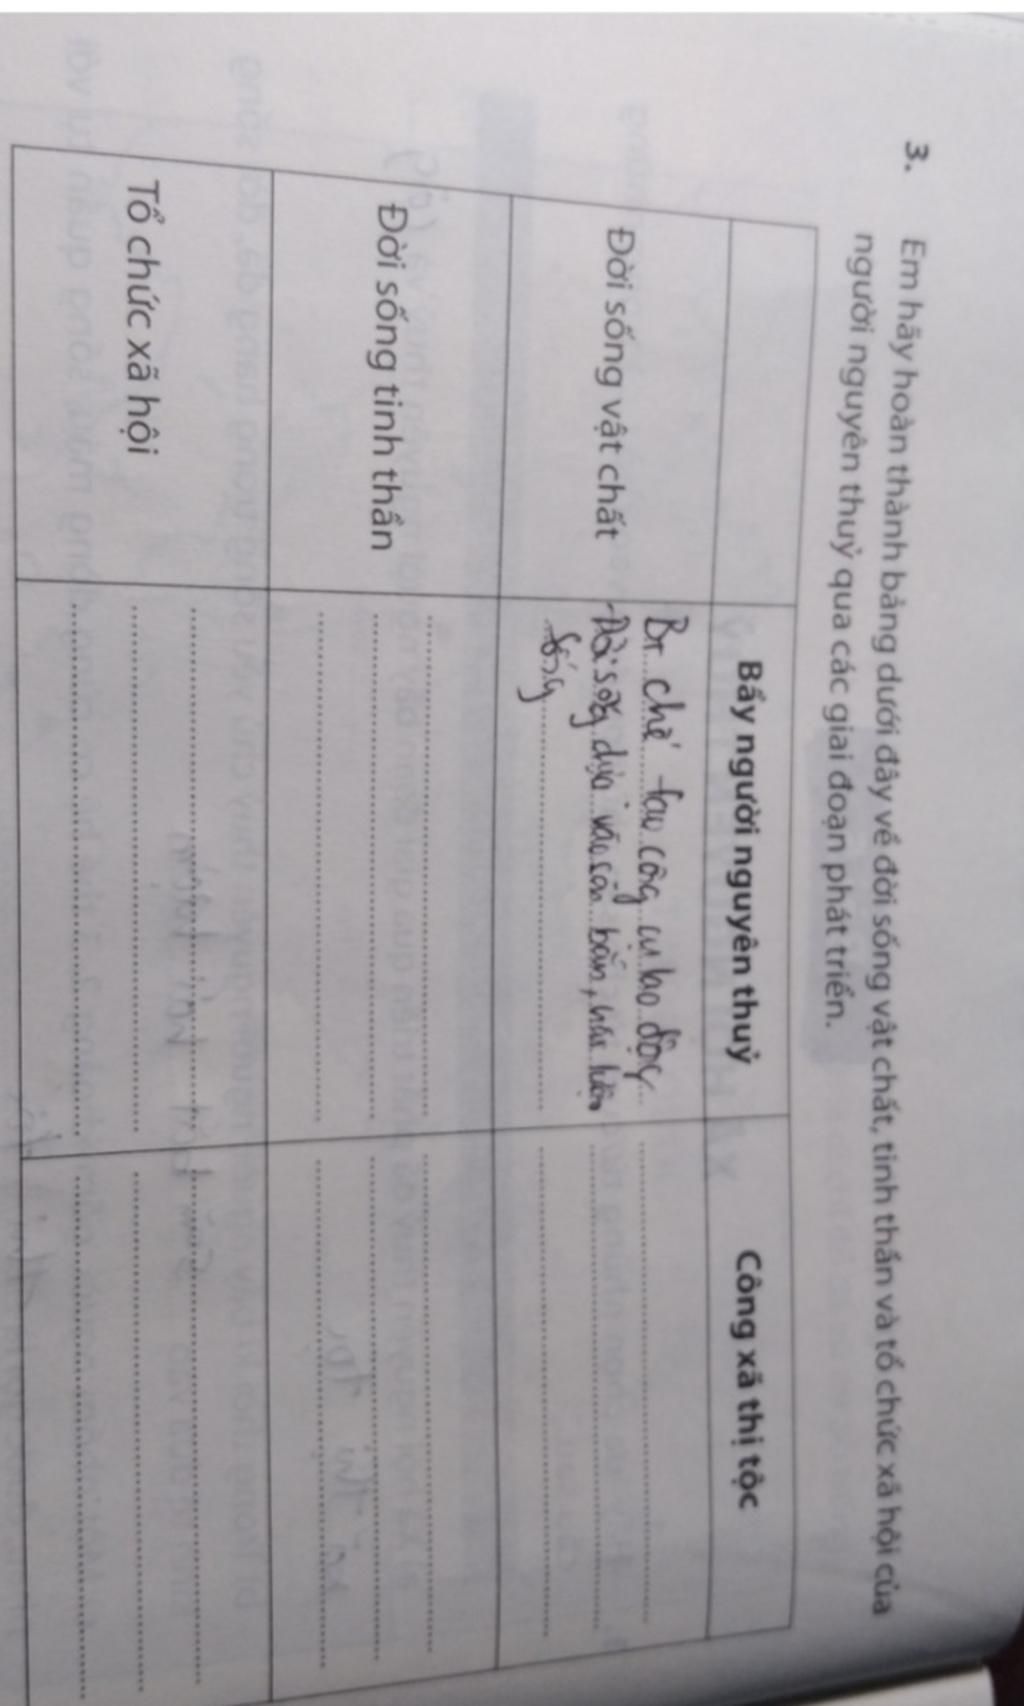 3. Em hãy hoàn thành bảng dưới đây về đời sống vật chất, tinh thần và tổ chức xã hội của
người nguyên thuỷ qua các giai đoạn phát triển.
Bầy người nguyên thuỷ
Công xã thị tộc
Đời sống vật chất
chế tạo công cụ lao động
sống dựa vào săn bắn, hái lượm
sống
Đời sống tinh thần
Tổ chức xã hội